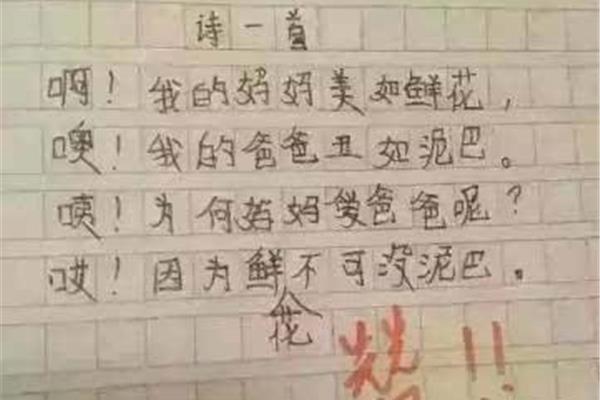 诗一首
啊！我的妈妈美如鲜花，
噢！我的爸爸丑如泥巴。
咦！为何妈妈爱爸爸呢？
哎！因为鲜花不可没泥巴。
!!